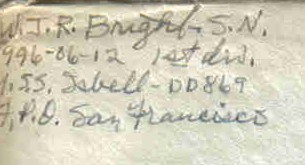 W.J.R. Bright, S.N.
996-06-12 1st div.
U.SS. Isbell - DD869
F.P.O. San Francisco